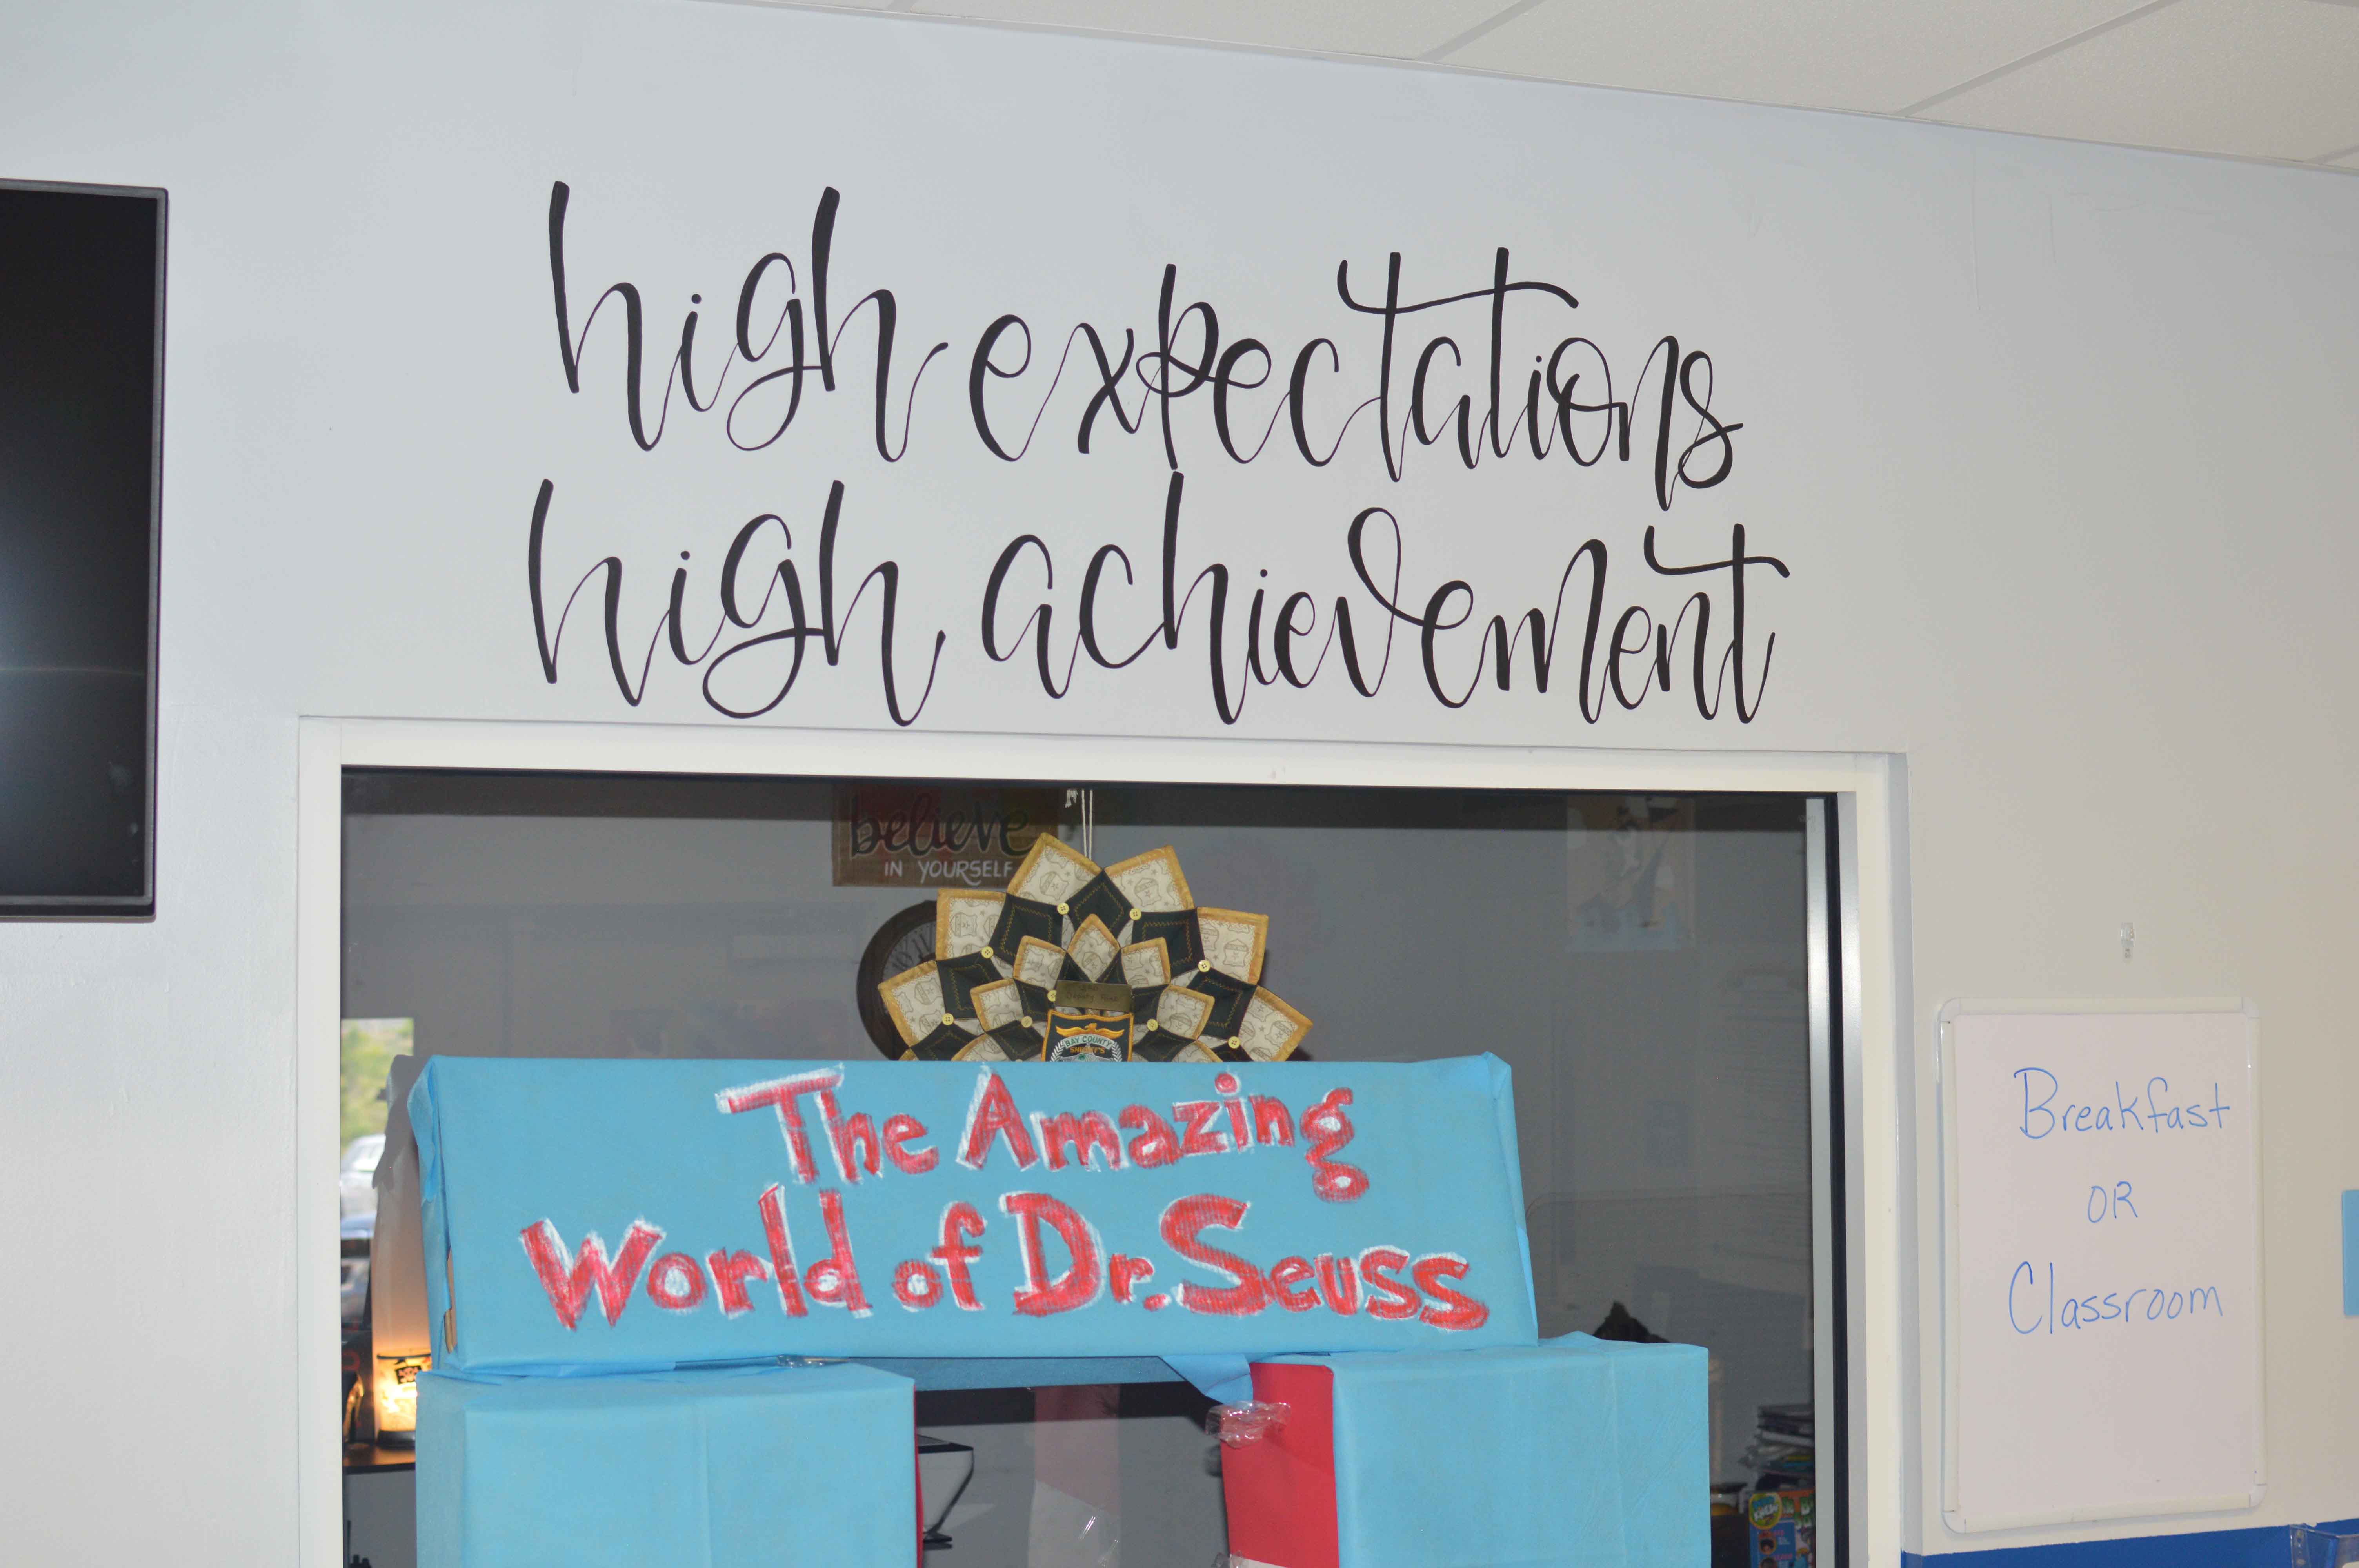 high expectations
high achievement
believe
IN YOURSELF
BAY COUNTY
The Amazing
World of Dr. Seuss
Breakfast
OR
Classroom